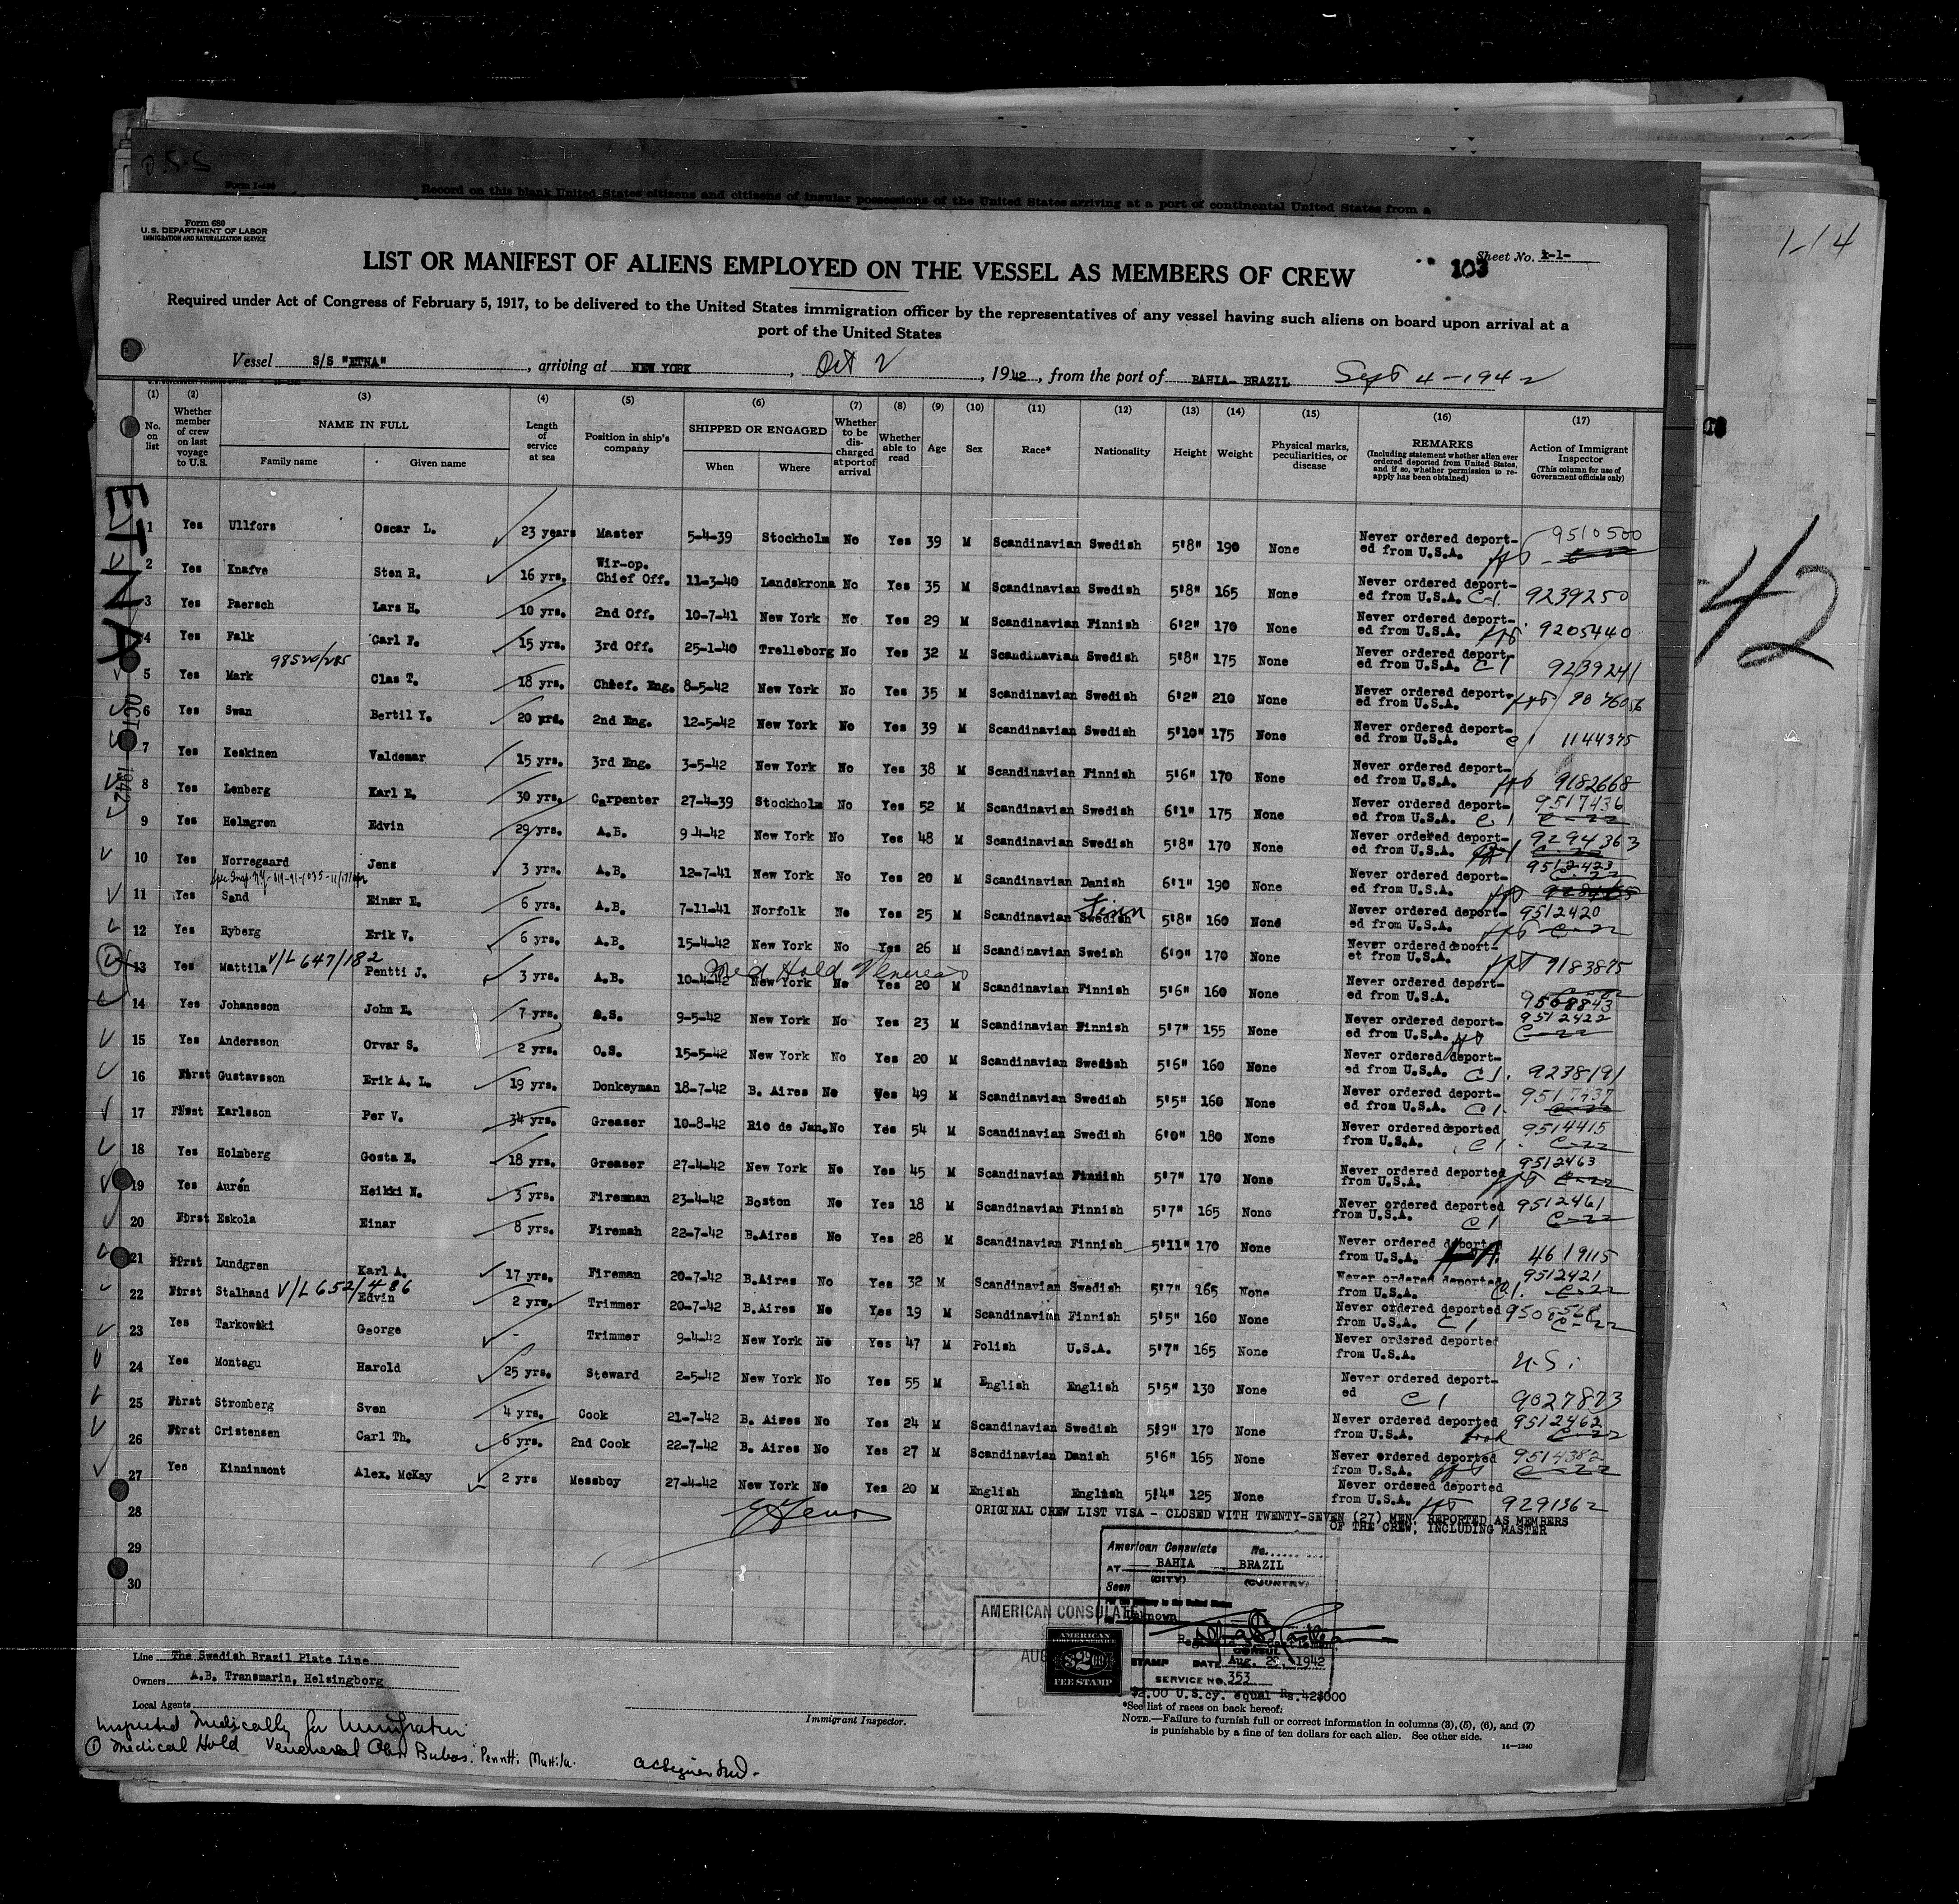 Form I-480
Record on this blank United States citizens and citizens of insular possessions of the United States arriving at a port of continental United States from a
Form 680
U.S. DEPARTMENT OF LABOR
IMMIGRATION AND NATURALIZATION SERVICE
1-14
Sheet No. -1-
103
LIST OR MANIFEST OF ALIENS EMPLOYED ON THE VESSEL AS MEMBERS OF CREW
Required under Act of Congress of February 5, 1917, to be delivered to the United States immigration officer by the representatives of any vessel having such aliens on board upon arrival at a
port of the United States
Vessel S/S "ETNA", arriving at NEW YORK, Oct 2, 1942, from the port of BAHIA- BRAZIL Sept 4-1942
(1) No. on list (2) Whether member of crew on last voyage to U.S. (3) NAME IN FULL Family name Given name (4) Length of service at sea (5) Position in ship's company (6) SHIPPED OR ENGAGED When Where (7) Whether to be discharged at port of arrival (8) Whether able to read (9) Age (10) Sex (11) Race* (12) Nationality (13) Height (14) Weight (15) Physical marks, peculiarities, or disease (16) REMARKS (Including statement whether alien ever ordered deported from United States, and if so, whether permission to re-apply has been obtained) (17) Action of Immigrant Inspector (This column for use of Government officials only)
ETNA
OCT 1942
42
1 Yes Ullfors Oscar L. 23 years Master 5-4-39 Stockholm No Yes 39 M Scandinavian Swedish 5'8" 190 None Never ordered deport-ed from U.S.A. 9510500
2 Yes Knafve Sten R. 16 yrs. Wir-op. Chief Off. 11-3-40 Landskrona No Yes 35 M Scandinavian Swedish 5'8" 165 None Never ordered deport-ed from U.S.A. C-1. 9239250
3 Yes Paersch Lars H. 10 yrs. 2nd Off. 10-7-41 New York No Yes 29 M Scandinavian Finnish 6'2" 170 None Never ordered deport-ed from U.S.A. 9205440
4 Yes Falk Carl F. 15 yrs. 3rd Off. 25-1-40 Trelleborg No Yes 32 M Scandinavian Swedish 5'8" 175 None Never ordered deport-ed from U.S.A. C1 9239241
98520/285
5 Yes Mark Clas T. 18 yrs. Chief. Eng. 8-5-42 New York No Yes 35 M Scandinavian Swedish 6'2" 210 None Never ordered deport-ed from U.S.A.
6 Yes Swan Bertil Y. 20 yrd. 2nd Eng. 12-5-42 New York No Yes 39 M Scandinavian Swedish 5'10" 175 None Never ordered deport-ed from U.S.A. C1 1144375
7 Yes Keskinen Valdemar 15 yrs. 3rd Eng. 3-5-42 New York No Yes 38 M Scandinavian Finnish 5'6" 170 None Never ordered deport-ed from U.S.A. 9182668
8 Yes Lenberg Karl E. 30 yrs. Carpenter 27-4-39 Stockholm No Yes 52 M Scandinavian Swedish 6'1" 175 None Never ordered deport-ed from U.S.A. C1 9517436 C-22
9 Yes Holmgren Edvin 29 yrs. A.B. 9-4-42 New York No Yes 48 M Scandinavian Swedish 5'8" 170 None Never ordered deport-ed from U.S.A. 9294363 C-22
10 Yes Norregaard Jens 3 yrs. A.B. 12-7-41 New York No Yes 20 M Scandinavian Danish 6'1" 190 None Never ordered deport-ed from U.S.A. 9512423 C-22
11 Yes Sand Einar E. 6 yrs. A.B. 7-11-41 Norfolk No Yes 25 M Scandinavian Swedish Finn 5'8" 160 None Never ordered deport-ed from U.S.A. 9512420 C-22
12 Yes Ryberg Erik V. 6 yrs. A.B. 15-4-42 New York No Yes 26 M Scandinavian Sweish 6'0" 170 None Never ordered deport-et from U.S.A. 9183875
13 Yes Mattila V/L 647/182 Pentti J. 3 yrs. A.B. 10-4-42 New York No Yes 20 M Scandinavian Finnish 5'6" 160 None Never ordered deport-ed from U.S.A. 9508843
Med Hold Venereal
14 Yes Johansson John E. 7 yrs. O.S. 9-5-42 New York No Yes 23 M Scandinavian Finnish 5'7" 155 None Never ordered deport-ed from U.S.A. 9512422 C-22
15 Yes Andersson Orvar S. 2 yrs. O.S. 15-5-42 New York No Yes 20 M Scandinavian Swedish 5'6" 160 None Never ordered deport-ed from U.S.A. C1. 9238191
16 First Gustavsson Erik A. L. 19 yrs. Donkeyman 18-7-42 B. Aires No Yes 49 M Scandinavian Swedish 5'5" 160 None Never ordered deport-ed from U.S.A. C1. 9517437 C-22
17 First Karlsson Per V. 34 yrs. Greaser 10-8-42 Rio de Jan. No Yes 54 M Scandinavian Swedish 6'0" 180 None Never ordered deported from U.S.A. C1. 9514415 C-22
18 Yes Holmberg Gosta E. 18 yrs. Greaser 27-4-42 New York No Yes 45 M Scandinavian Finnish 5'7" 170 None Never ordered deported from U.S.A. 9512463 C-22
19 Yes Aurén Heikki N. 3 yrs. Firemnan 23-4-42 Boston No Yes 18 M Scandinavian Finnish 5'7" 165 None Never ordered deported from U.S.A. C1 9512461 C-22
20 First Eskola Einar 8 yrs. Firemah 22-7-42 B.Aires No Yes 28 M Scandinavian Finnish 5'11" 170 None Never ordered deported from U.S.A. 4619115
21 First Lundgren Karl A. 17 yrs. Fireman 20-7-42 B.Aires No Yes 32 M Scandinavian Swedish 5'7" 165 None Never ordered deported from U.S.A. C1. 9512421 C-22
22 First Stalhand V/L 652/486 Edvin 2 yrs. Trimmer 20-7-42 B.Aires No Yes 19 M Scandinavian Finnish 5'5" 160 None Never ordered deported from U.S.A. C1 9508568 C-22
23 Yes Tarkowski George - Trimmer 9-4-42 New York No Yes 47 M Polish U.S.A. 5'7" 165 None Never ordered deported from U.S.A. U.S.
24 Yes Montagu Harold 25 yrs. Steward 2-5-42 New York No Yes 55 M English English 5'5" 130 None Never ordered deport-ed C1 9027873
25 First Stromberg Sven 4 yrs. Cook 21-7-42 B. Aires No Yes 24 M Scandinavian Swedish 5'9" 170 None Never ordered deported from U.S.A. 9512462 C-22
26 First Cristensen Carl Th. 6 yrs. 2nd Cook 22-7-42 B. Aires No Yes 27 M Scandinavian Danish 5'6" 165 None Never ordered deported from U.S.A. 9514382 C-22
27 Yes Kinninmont Alex. McKay 2 yrs Messboy 27-4-42 New York No Yes 20 M English English 5'4" 125 None Never ordered deported from U.S.A. 9291362
28
29
30
ORIGINAL CREW LIST VISA - CLOSED WITH TWENTY-SEVEN (27) MEN, REPORTED AS MEMBERS
OF THE CREW, INCLUDING MASTER
American Consulate No.
AT BAHIA BRAZIL
(CITY) (COUNTRY)
Seen
For the journey to the United States
Unknown
AMERICAN CONSULATE
AUG
AMERICAN
FOREIGN SERVICE
$2.00
FEE STAMP
CONSUL
STAMP DATE Aug. 1942
SERVICE NO. 353
$2.00 U.S.cy. equal Rs.42$000
Line The Swedish Brazil Plate Line
Owners A.B. Transmarin, Helsingborg
Local Agents
Immigrant Inspector.
*See list of races on back hereof.
NOTE.—Failure to furnish full or correct information in columns (3), (5), (6), and (7)
is punishable by a fine of ten dollars for each alien. See other side.
14—1240
Inspected Medically for Immigration
① Medical Hold Venereal Bubos. Penntti Mattila.